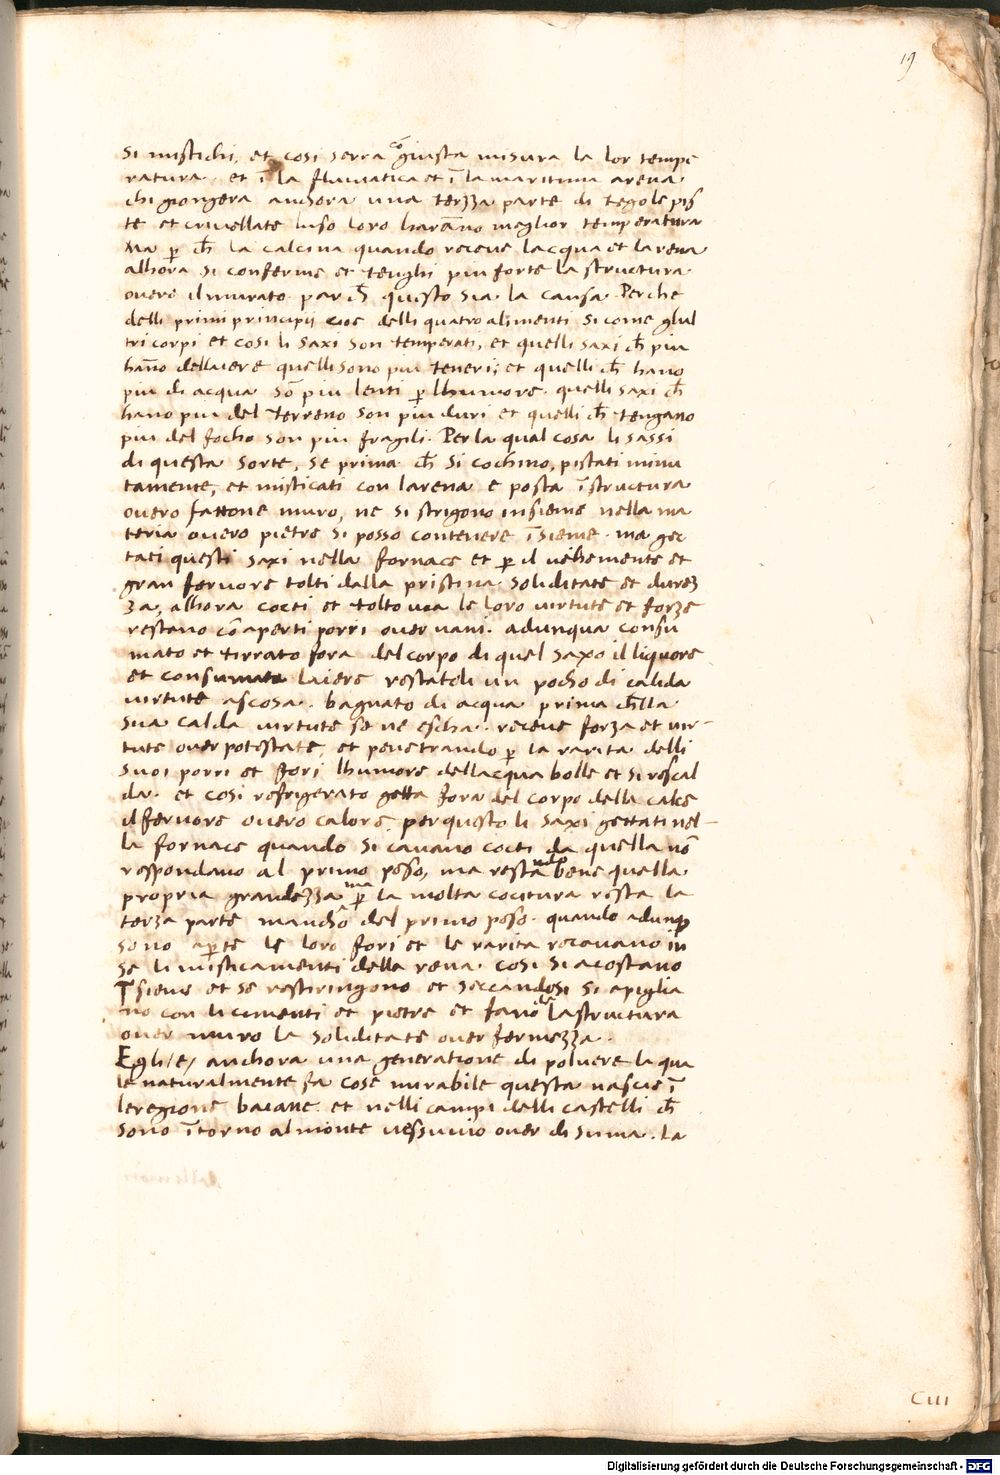 19
si mistichi, et cosi serra cō giusta misura la lor tempe
ratura. et ī la fluuiatica et ī la maritima arena.
chi giongera anchora una terzza parte di tegole pis
te et criuellate luso loro harāno meglior temperatura
Ma p̱ ch̄ la calcina quando receue lacqua et larena
alhora si conferme et tenghi piu forte la structura.
ouero il murato. par ch̄ questo sia. la causa. Perche
delli primi principij cioe delli quatro alimenti si come glal
tri corpi et cosi li saxi son temperati, et quelli saxi ch̄ piu
hāno dellaiere quelli sono piu teneri; et quelli ch̄ hano
piu di acqua sō piu lenti p̱ lhumore. quelli saxi ch̄
hano piu del terreno son piu duri et quelli ch̄ tengano
piu del focho son piu fragili. Per la qual cosa li sassi
di questa sorte, se prima ch̄ si cochino, pistati minu
tamente, et misticati con larena e posta ī structura
ouero fattone muro, ne si strigono insieme nella ma
teria ouero pietre si posso contenere īsieme. ma get
tati questi saxi nella fornace et p̱ il uehemente et
gran feruore tolti dalla pristina soliditate et durez
za, alhora cocti et tolto uia le loro uirtute et forze
restano cō aperti porri ouer uani. adunqua consu
mato et tirrato fora del corpo di quel saxo il liquore
et consumato laiere restatoli un pocho di calida
uirtute ascosa. bagnato di acqua prima ch̄ la
sua calda uirtute se ne escha. receue forza et uir-
tute ouer potestate, et penetrando p̱ la rarita delli
suoi porri et fori lhumore dellacqua bolle et si roscal
da. et cosi refrigerato getta fora del corpo della calce
il feruore ouero calore. per questo li saxi gettati nel-
la fornace quando si cauano cocti da quella nō
respondano al primo peso, ma restando bene quella
propria grandezza ma p̱ la molta cocitura resta la
terza parte mancho del primo peso. quando adunq̱
sono ap̱te le loro fori et le rarita receuano in
se li misticamenti della rena. cosi si acostano
īsieme et se restiringono et seccandosi si apiglia
no con li cimenti et pietre et fano la structura
ouer muro la soliditate ouer fermezza.
Egli /e/ anchora una generatione di poluere la qua
le naturalmente fa cose mirabile questa nascie ī
le regione baiane. et nelli campi delli castelli ch̄
sono ītorno al monte uessuuio ouer di suma. la
C III
Digitalisierung gefördert durch die Deutsche Forschungsgemeinschaft - DFG